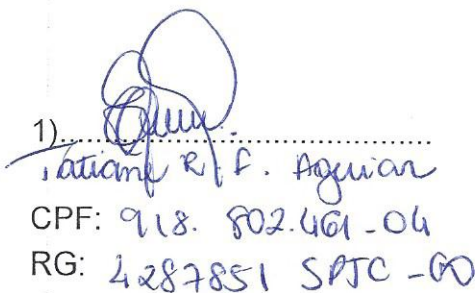 1)..................................................
Tatiane R. F. Aguiar
CPF: 918. 802.461-04
RG: 4287851 SPTC-GO